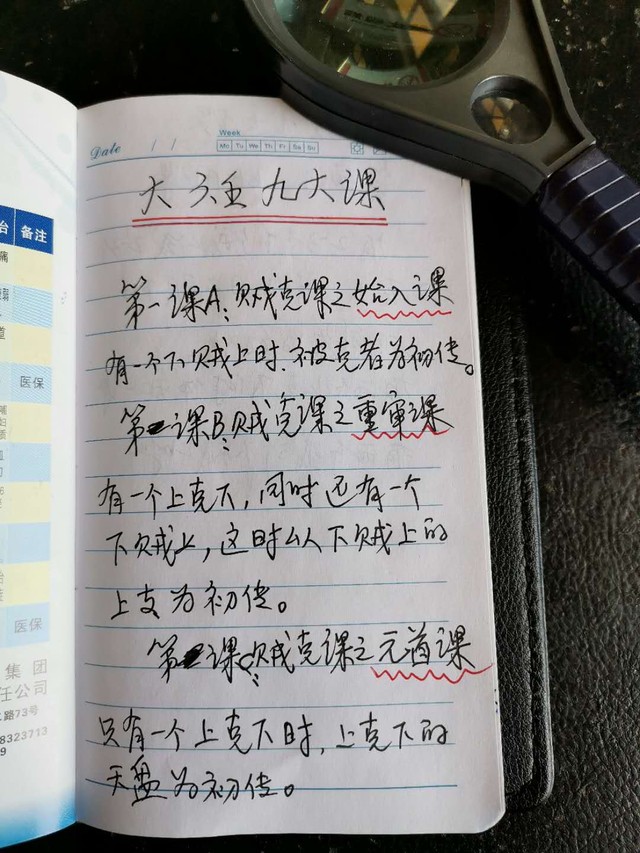 治 备注
痛
道
医保
哺
妇
质
医保
集团
任公司
路73号
8323713
9
Date / /
Week
Mo Tu We Th Fr Sa Su
大六壬九大课
第一课A:贼克课之始入课
有一个下贼上时、被克者为初传。
第一课B:贼克课之重审课
有一个上克下,同时还有一个
下贼上,这时以下贼上的
上支为初传。
第一课C:贼克课之元首课
只有一个上克下时,上克下的
天盘为初传。